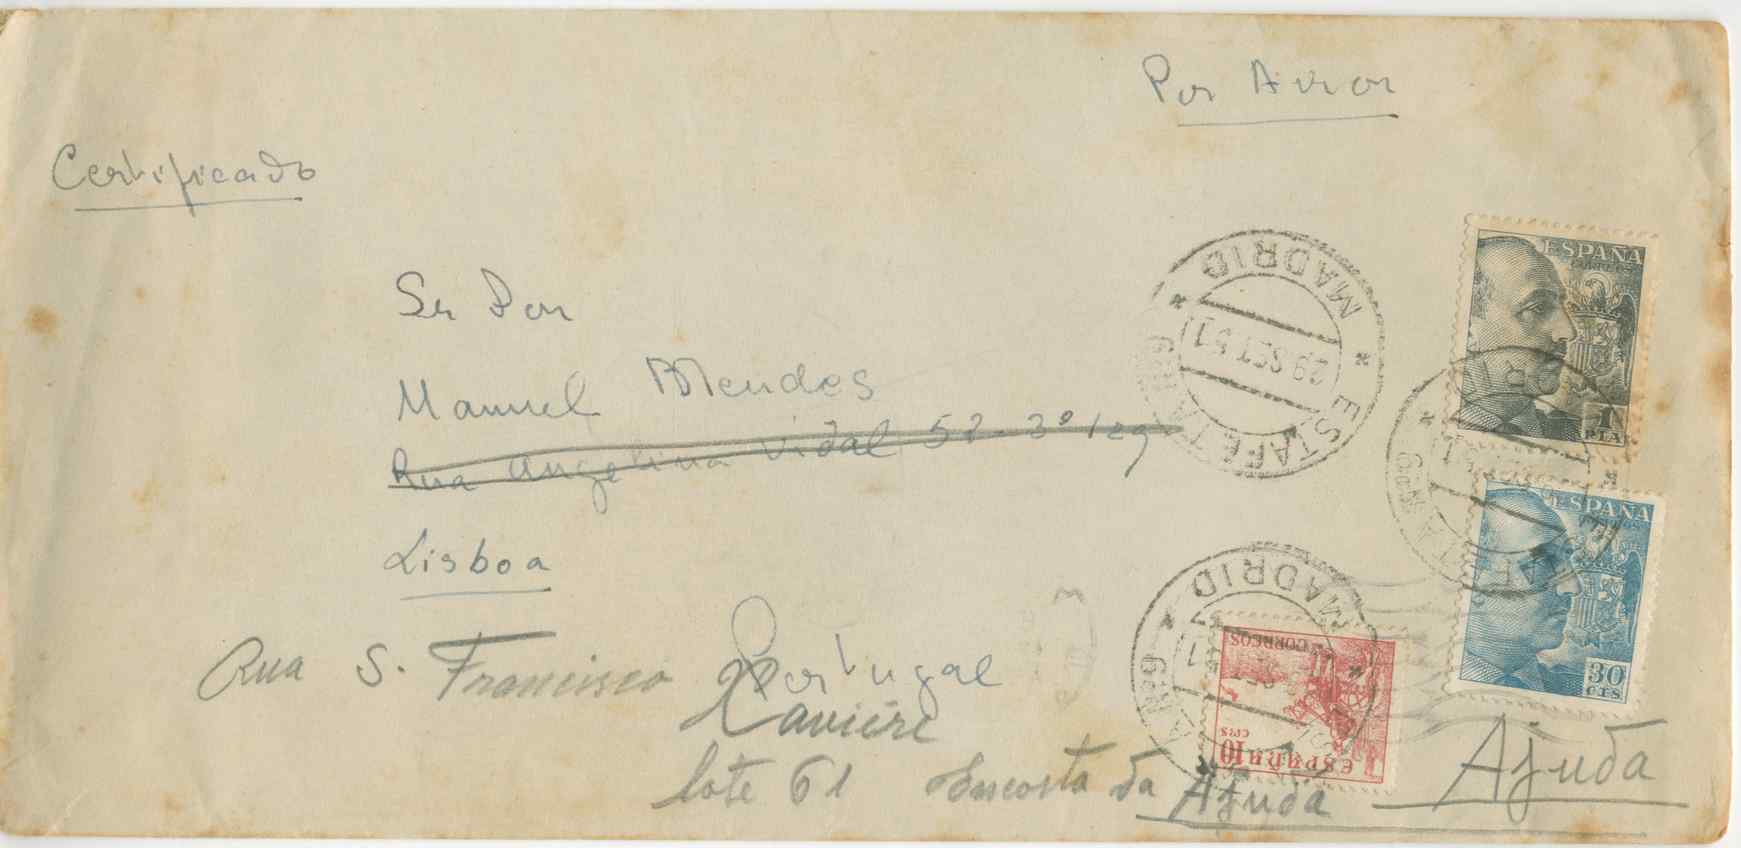 Por Avion
Certificado
Sr Don
Manuel Mendes
Rua Angelina Vidal 52-3º Izq
Lisboa
Portugal
Rua S. Francisco
Xaviére
lote 61 Encosta da Ajuda
Ajuda
MADRID
29 SET. 51
ESTAFETA Nº 9
ESPAÑA
CORREOS
1
PTA
MADRID
ESTAFETA Nº 9
ESPAÑA
30
CTS
CORREOS
10
CTS
ESPAÑA